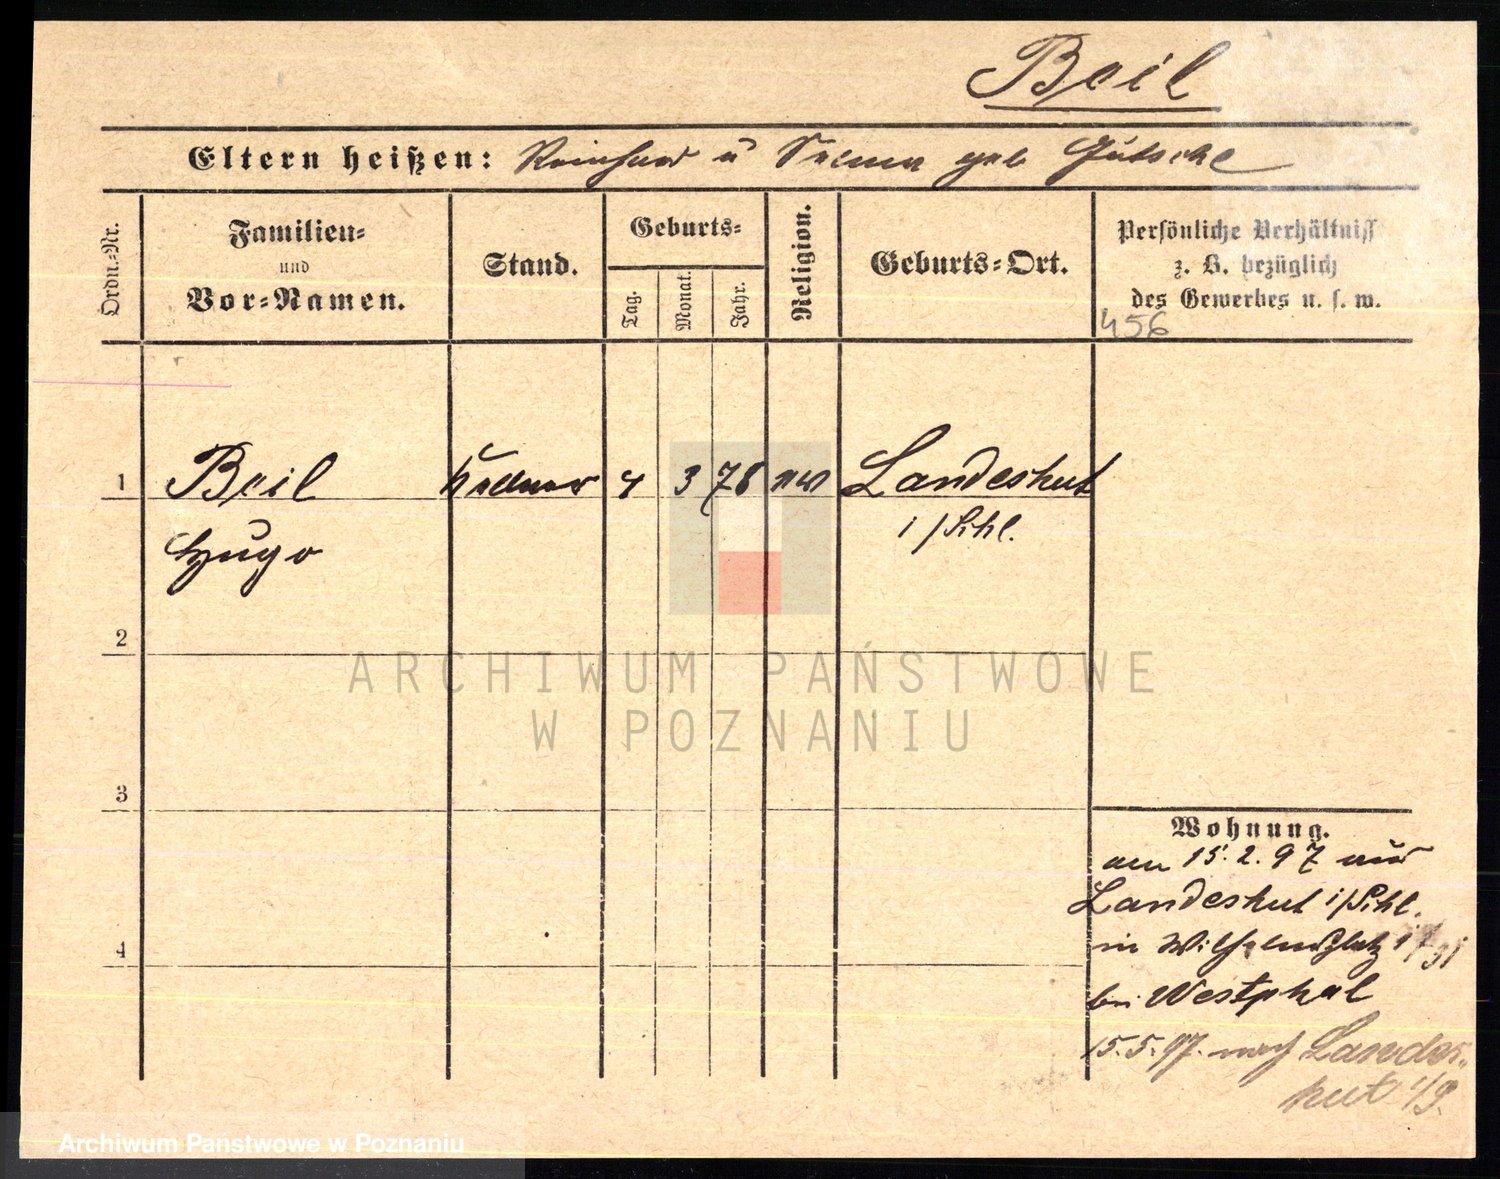 Beil
Eltern heißen: Reinhard u Selma geb Gütschel
Ordn.-Nr.
Familien-
und
Vor-Namen.
Stand.
Geburts-
Tag.
Monat.
Jahr.
Religion.
Geburts-Ort.
Persönliche Verhältniss
z. B. bezüglich
des Gewerbes u. s. w.
456
1 Beil Kellner 4 3 78 ev Landeshut
Hugo i/Schl.
2
3
4
Wohnung.
am 15.2.97 aus
Landeshut i/Schl.
in Wilhelmsplatz
bei Westphal
15.5.97. nach Landes-
hut i/S.
ARCHIWUM PAŃSTWOWE
W POZNANIU
Archiwum Państwowe w Poznaniu